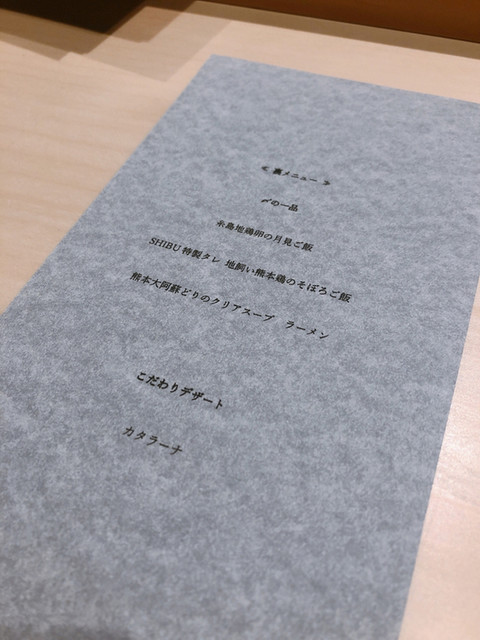 《 裏メニュー 》
〆の一品
糸島地鶏卵の月見ご飯
SHIBU特製タレ 地飼い熊本鶏のそぼろご飯
熊本大阿蘇どりのクリアスープ ラーメン
こだわりデザート
カタラーナ